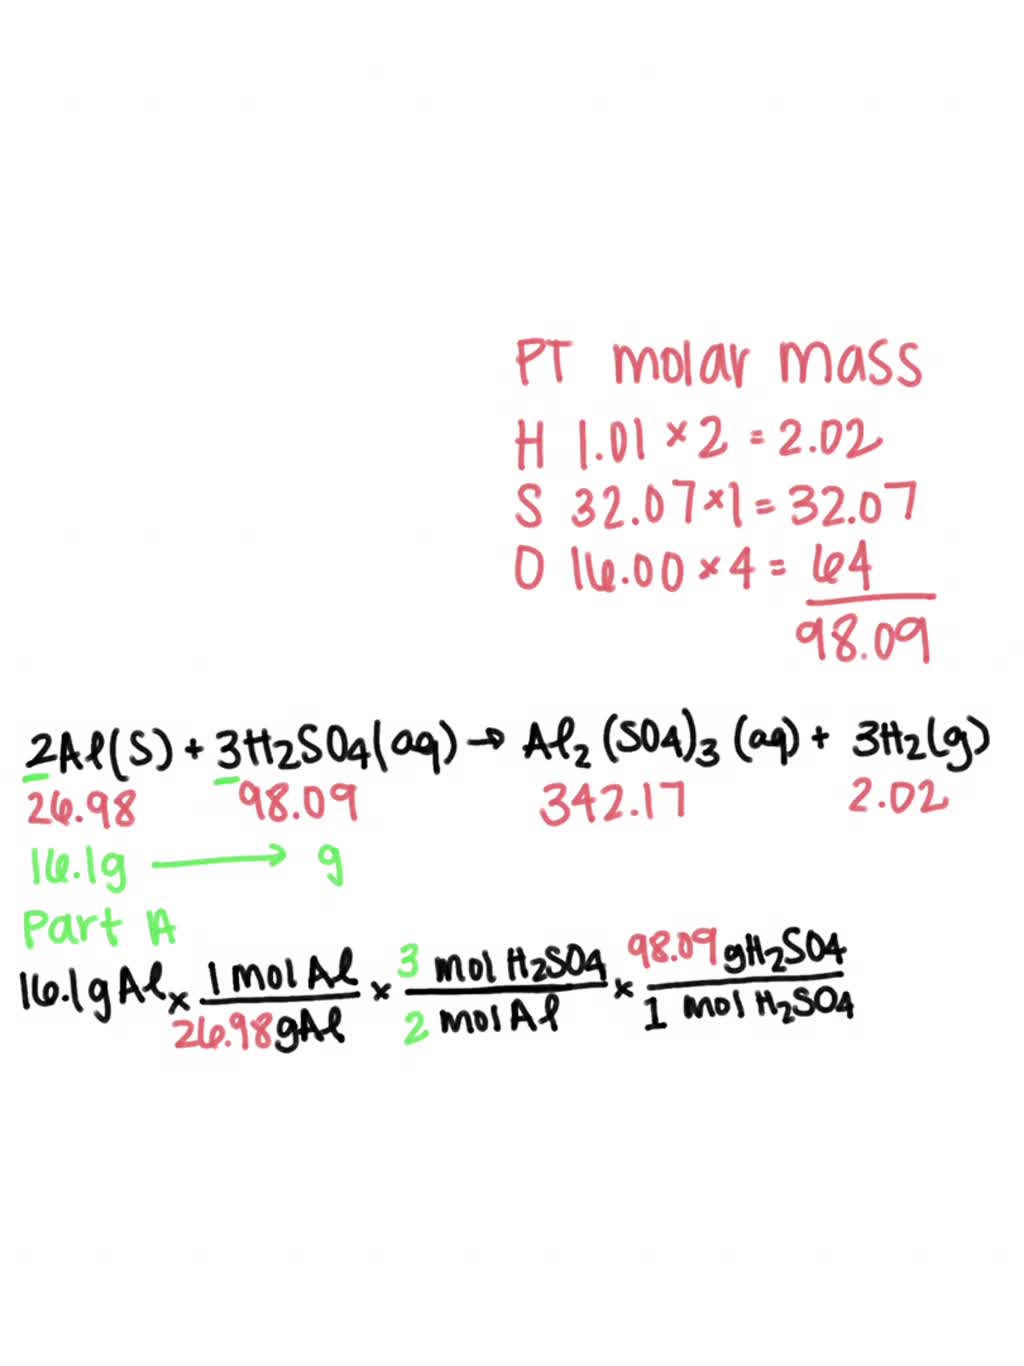 PT molar mass
H 1.01 × 2 = 2.02
S 32.07 × 1 = 32.07
O 16.00 × 4 = 64
98.09
2Al(S) + 3H2SO4(aq) → Al2(SO4)3 (aq) + 3H2(g)
26.98 98.09 342.17 2.02
16.1g → g
Part A
16.1g Al × 1 mol Al / 26.98 g Al × 3 mol H2SO4 / 2 mol Al × 98.09 g H2SO4 / 1 mol H2SO4